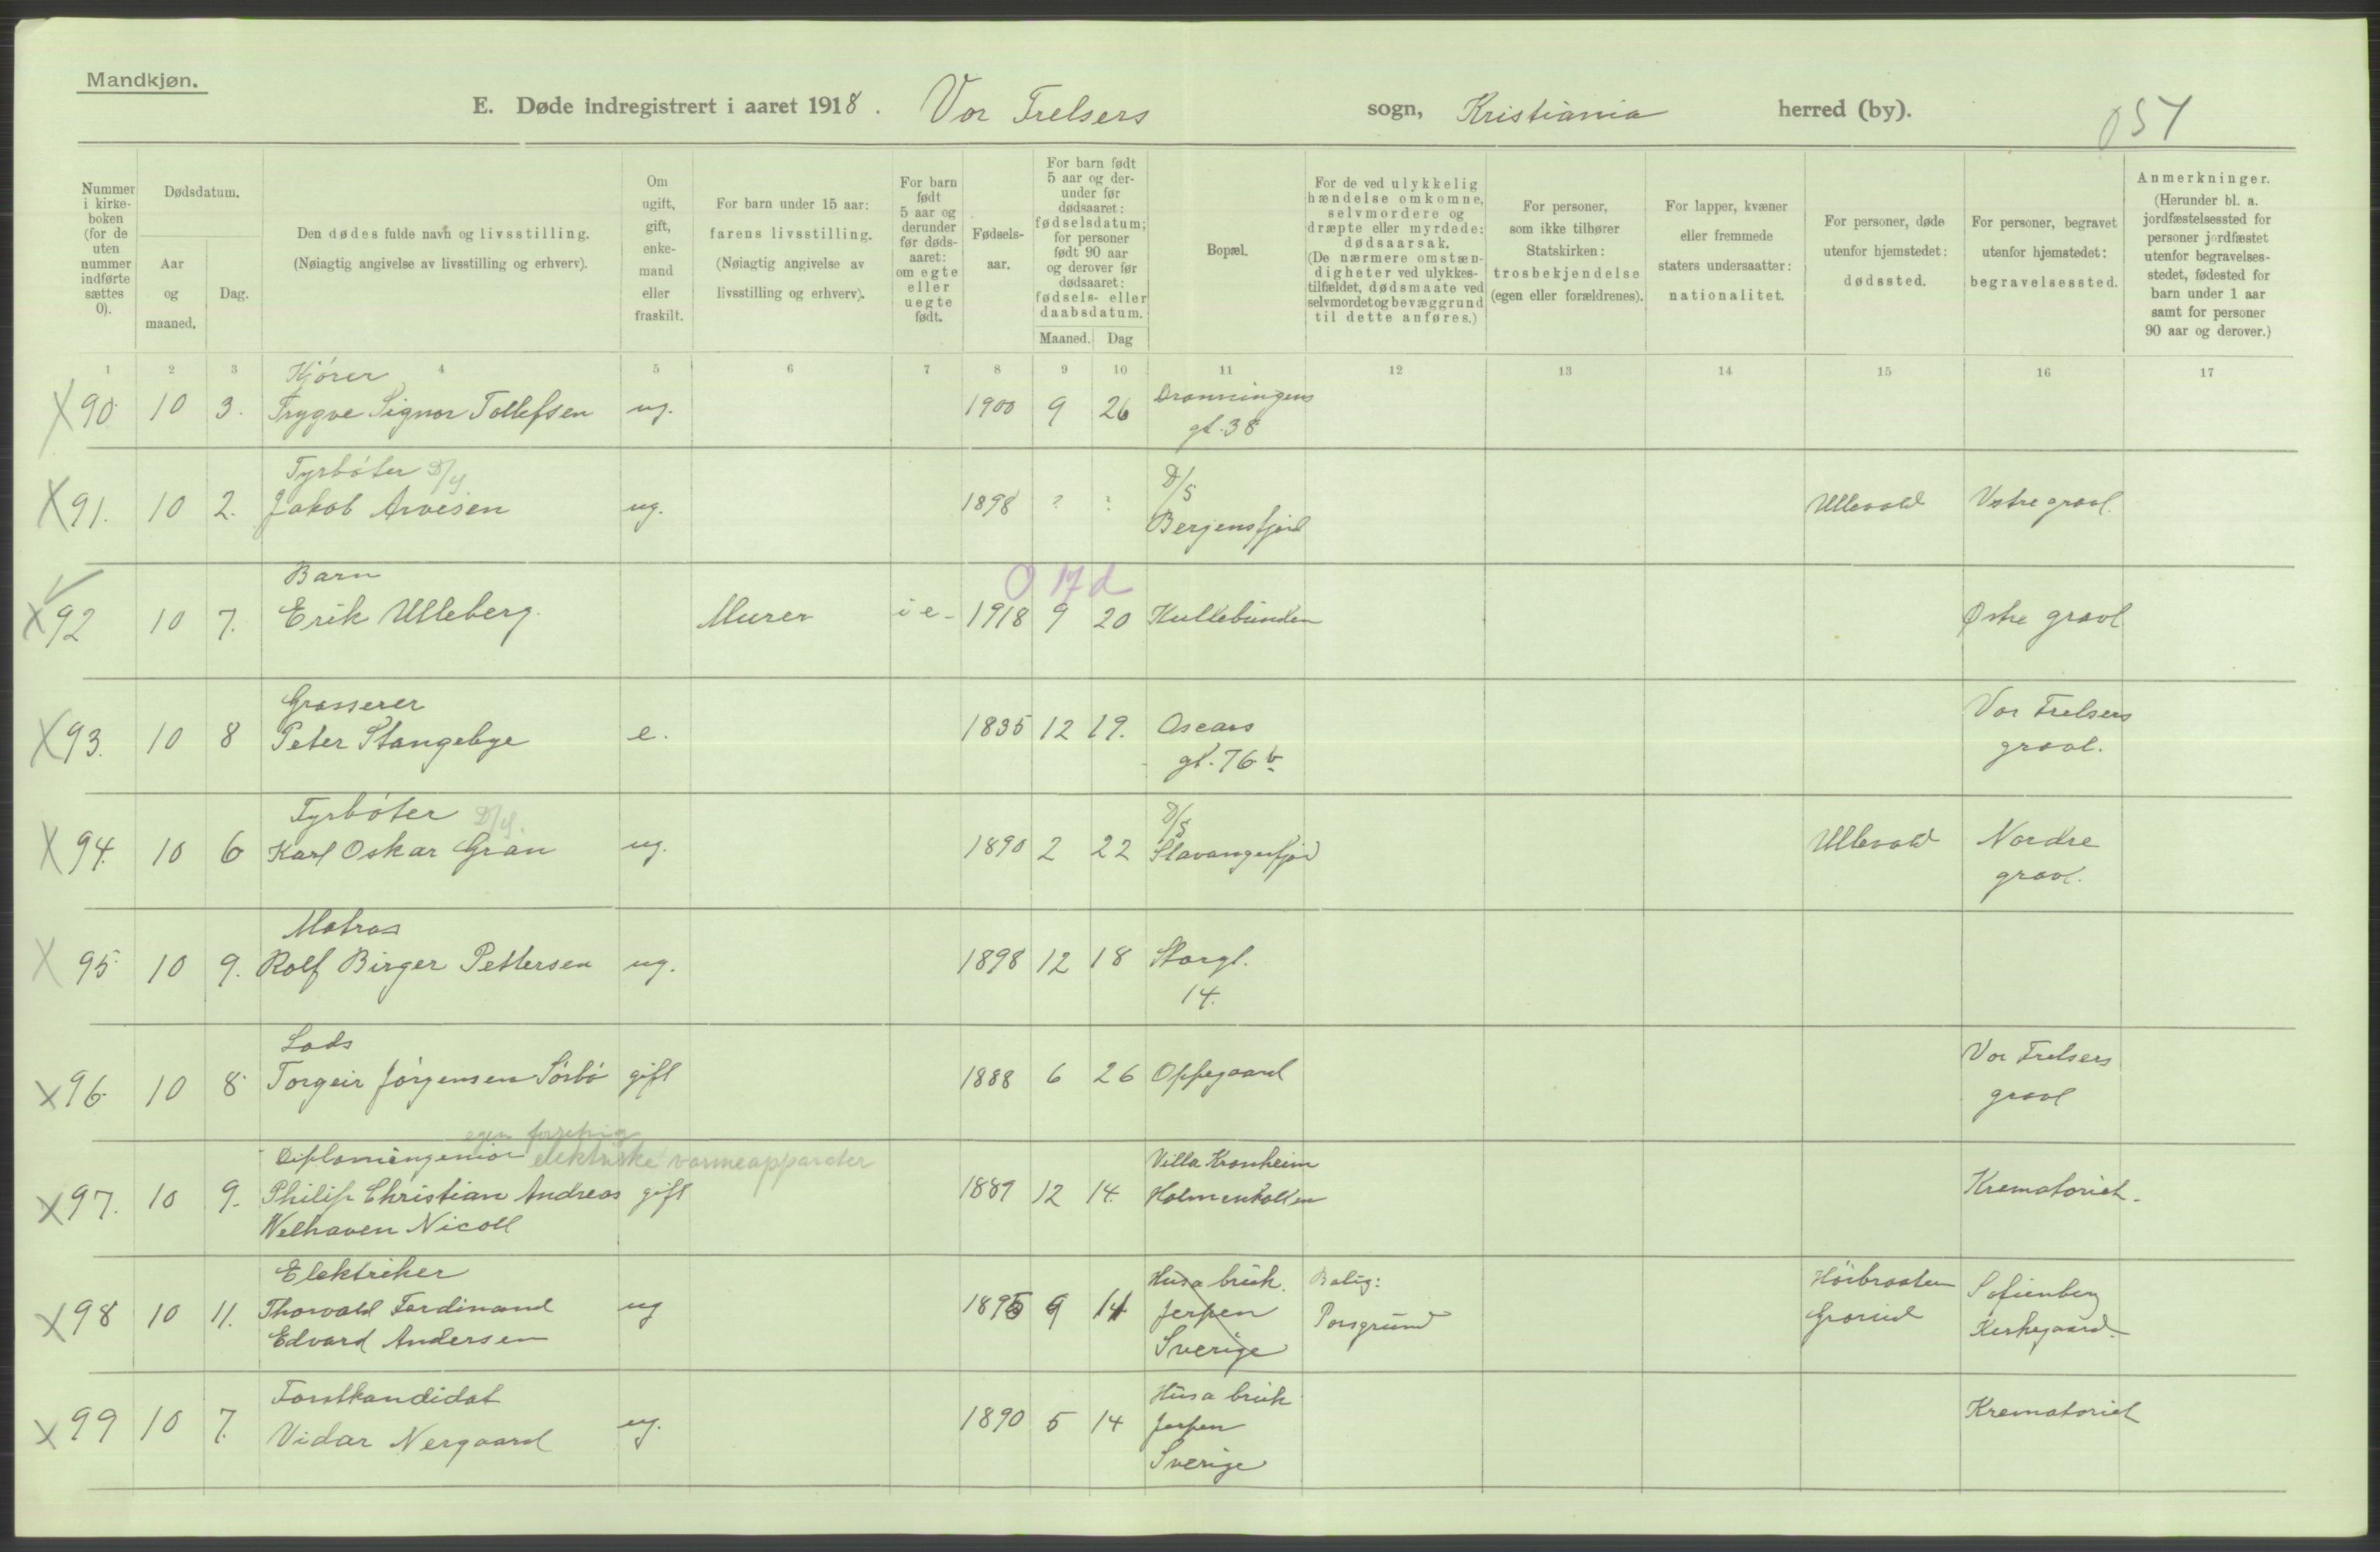 Mandkjøn.
E. Døde indregistrert i aaret 1918. Vor Frelsers sogn, Kristiania herred (by).
Nummer i kirkeboken (for de uten nummer indførte sættes 0).
Dødsdatum.
Aar og maaned.
Dag.
Den dødes fulde navn og livsstilling.
(Nøiagtig angivelse av livsstilling og erhverv).
Om ugift, gift, enkemand eller fraskilt.
For barn under 15 aar: farens livsstilling.
(Nøiagtig angivelse av livsstilling og erhverv).
For barn født 5 aar og derunder før dødsaaret: om egte eller uegte født.
Fødselsaar.
For barn født 5 aar og derunder før dødsaaret: fødselsdatum; for personer født 90 aar og derover før dødsaaret: fødsels- eller daabsdatum.
Maaned. Dag
Bopæl.
For de ved ulykkelig hændelse omkomne, selvmordere og dræpte eller myrdede: dødsaarsak.
(De nærmere omstændigheter ved ulykkestilfældet, dødsmaate ved selvmordet og bevæggrund til dette anføres.)
For personer, som ikke tilhører Statskirken: trosbekjendelse (egen eller forældrenes).
For lapper, kvæner eller fremmede staters undersaatter: nationalitet.
For personer, døde utenfor hjemstedet: dødssted.
For personer, begravet utenfor hjemstedet: begravelsessted.
Anmerkninger.
(Herunder bl. a. jordfæstelsessted for personer jordfæstet utenfor begravelsesstedet, fødested for barn under 1 aar samt for personer 90 aar og derover.)
1 2 3 4 5 6 7 8 9 10 11 12 13 14 15 16 17
Kjörer
X 90 10 3. Trygve Signor Tollefsen ug. 1900 9 26 Dronningens
gt. 38
Fyrböter D/S
X 91. 10 2. Jakob Arvesen ug. 1898 ? : D/S Bergensfjord Ullevold Vestre gravl.
Barn
0 17 d
X 92 10 7. Erik Ulleberg. Murer i e- 1918 9 20 Kullebunden Østre gravl.
Grosserer
X 93. 10 8 Peter Stangebye e. 1835 12 19. Oscars gt. 76 b Vor Frelsers gravl.
Fyrböter D/S.
X 94. 10 6 Karl Oskar Gran ug. 1890 2 22 D/S Stavangerfjord Ullevold Nordre gravl.
Matros
X 95 10 9. Rolf Birger Pettersen ug. 1898 12 18 Storgt. 14.
Lods
X 96. 10 8 Torgeir Jörgensen Sörbö gift 1888 6 26 Oppegaard Vor Frelsers gravl
egen forretnig
Diplomingeniör elektriske varmeapparater
X 97. 10 9. Philip Christian Andreas gift 1889 12 14. Villa Kronheim Holmenkollen Krematoriet.
Welhaven Nicoll
Elektriker
X 98 10 11. Thorvald Ferdinand ug 1895 9 14 Husa bruk. Jerpen Sverige Bolig: Porsgrund Höibraaten Grorud Sofienberg Kirkegaard.
Edvard Andersen
Forstkandidat
X 99 10 7. Vidar Nergaard ug. 1890 5 14 Husa bruk Jerpen Sverige Krematoriet